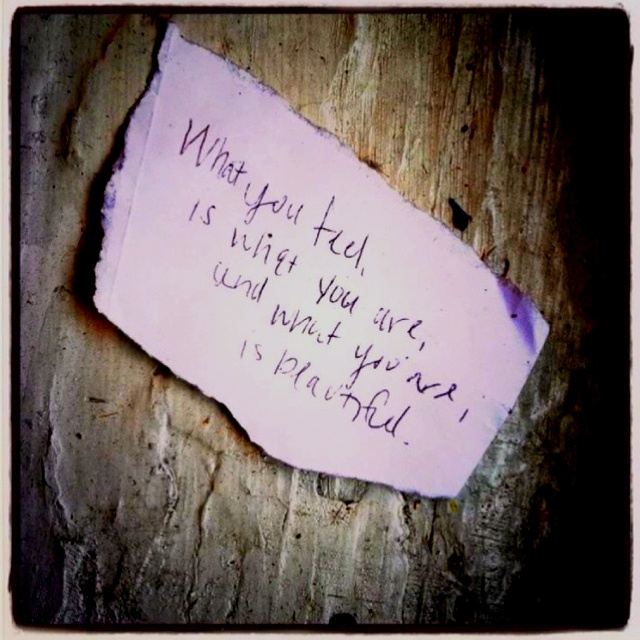 What you feel,
is what you are,
and what you are,
is beautiful.